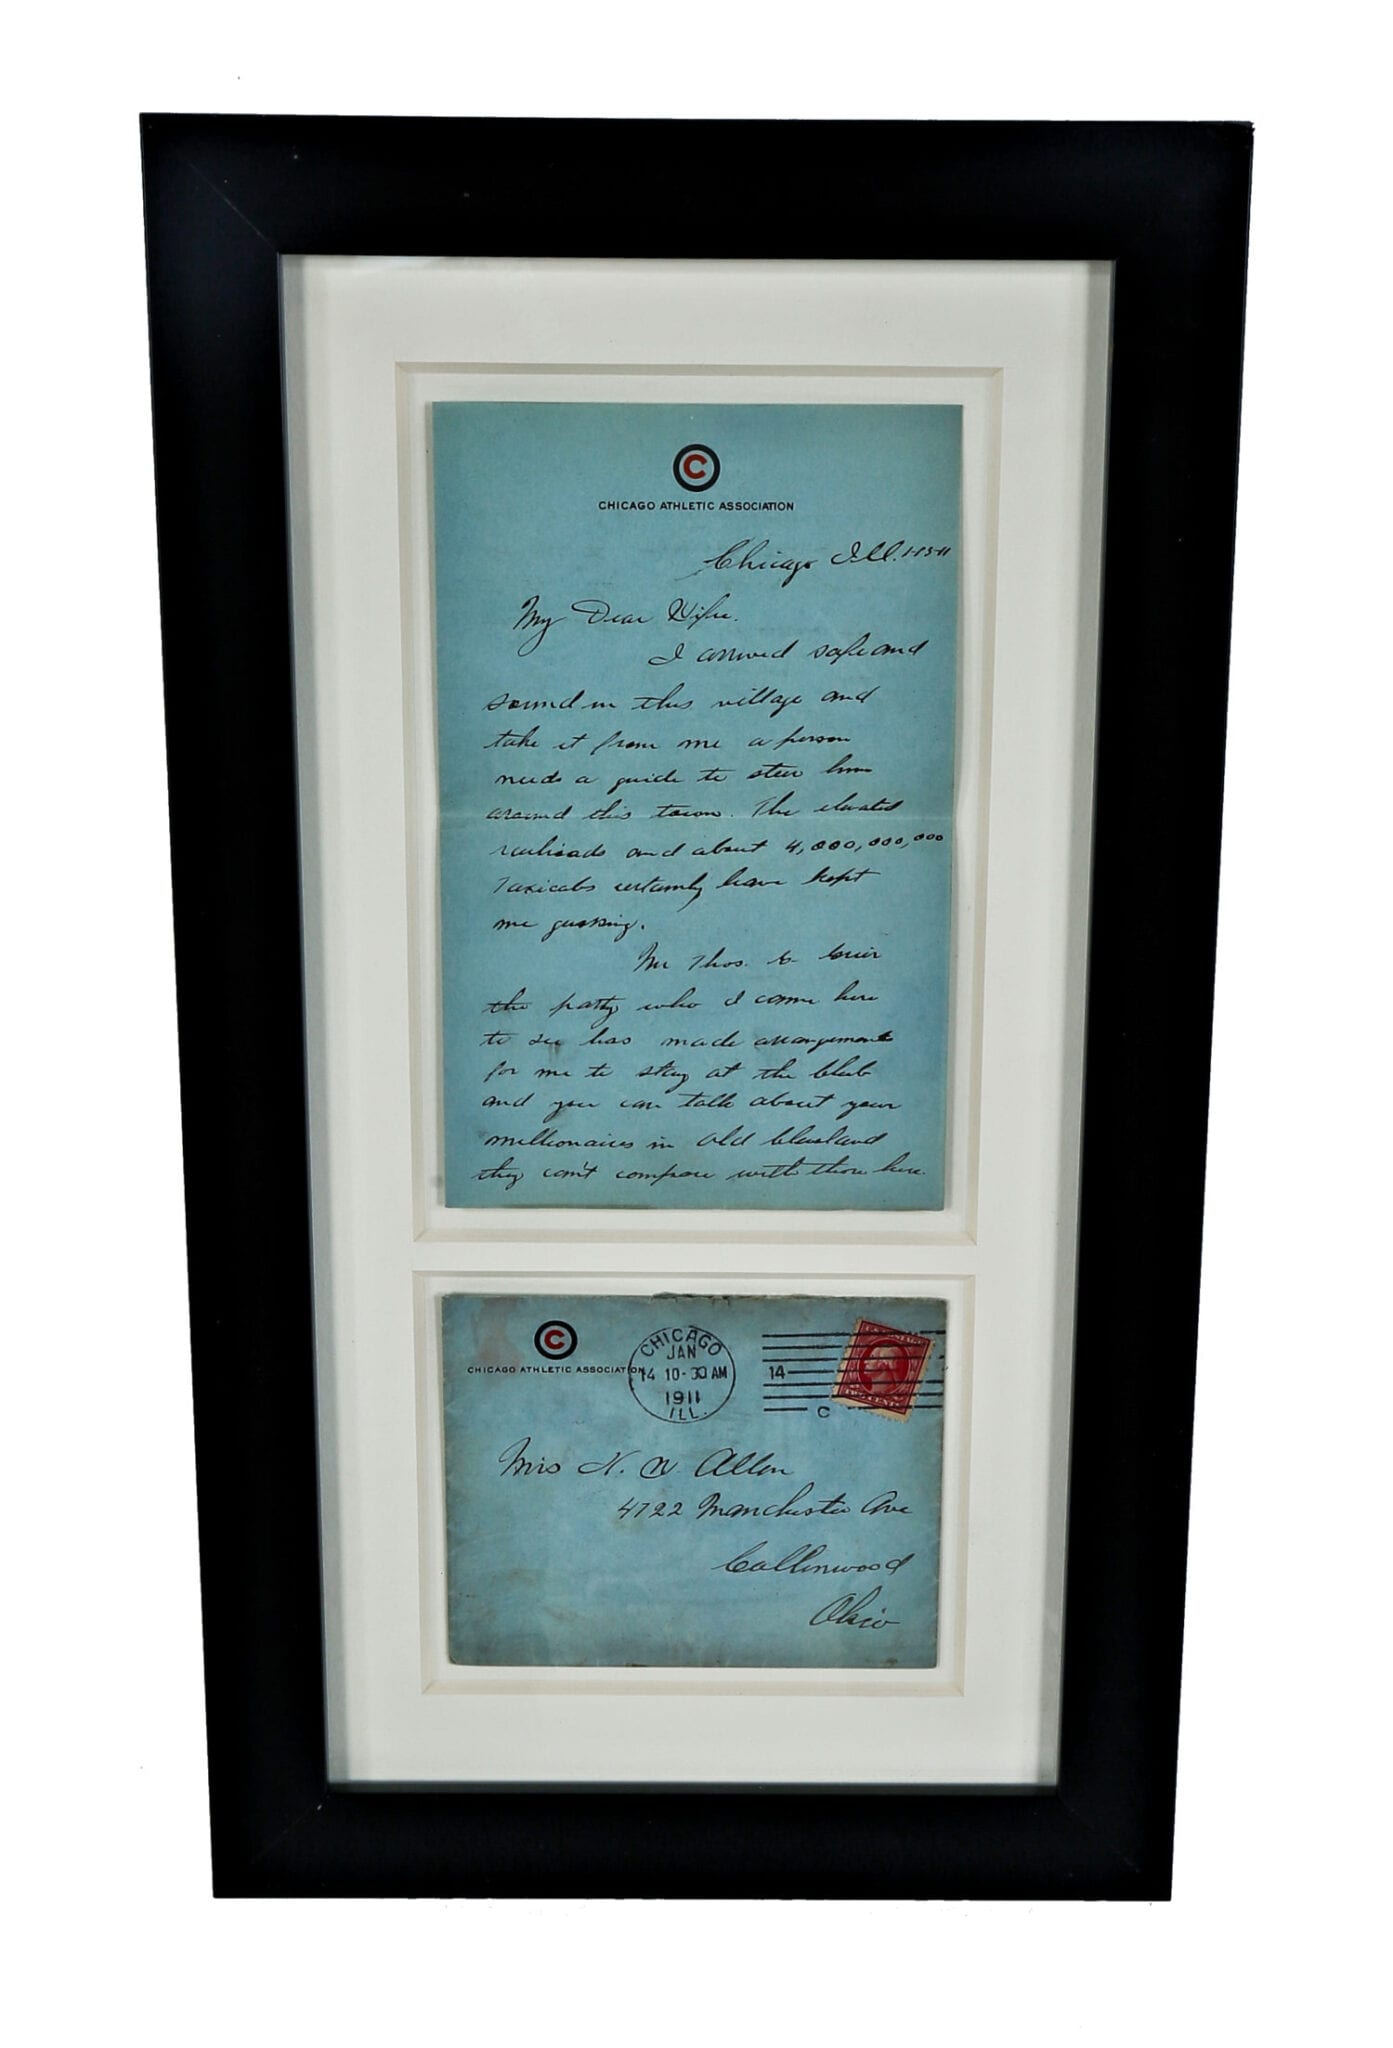 C
CHICAGO ATHLETIC ASSOCIATION
Chicago Ill. 1-13-11
My Dear Wife.
I arrived safe and
sound in this village and
take it from me a person
needs a guide to steer him
around this town. The elevated
railroads and about 4,000,000,000
Taxicabs certainly have kept
me guessing.
Mr Thos.
the party who I came here
to see has made arrangements
for me to stay at the Club
and you can talk about your
millionaires in old Cleveland
they can't compare with those here.
C
CHICAGO ATHLETIC ASSOCIATION
CHICAGO
JAN
14 10-30 AM
1911
ILL.
14
C
Mrs N. W. Allen
4722 Manchester Ave
Collinwood
Ohio